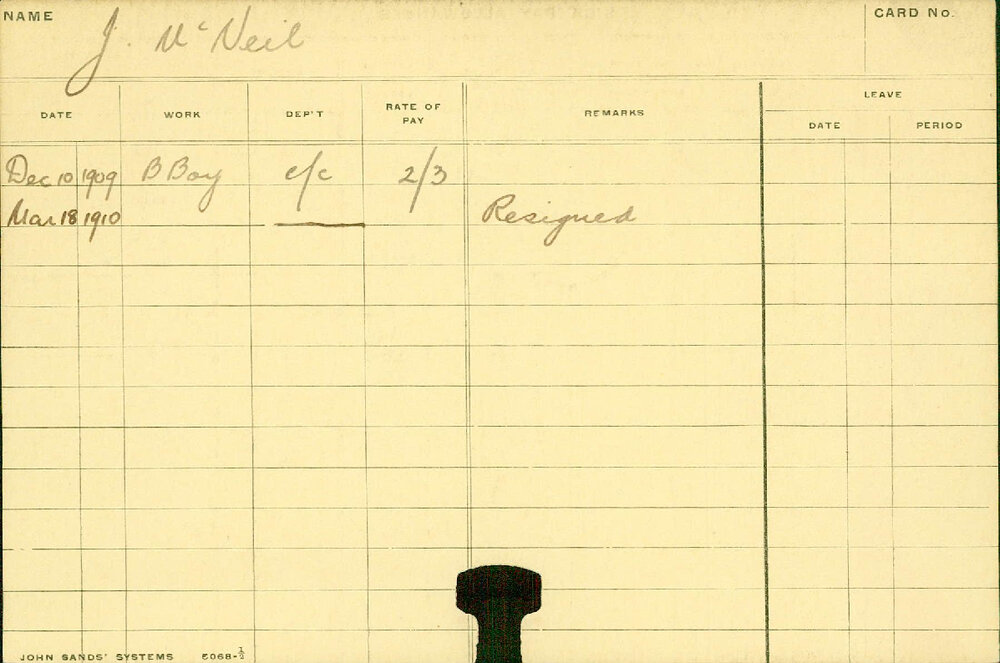 NAME J. McNeil CARD No.
DATE WORK DEP'T RATE OF PAY REMARKS LEAVE
DATE PERIOD
Dec 10 1909 B Boy c/c 2/3
Mar 18 1910 Resigned
JOHN SANDS' SYSTEMS 6068-½